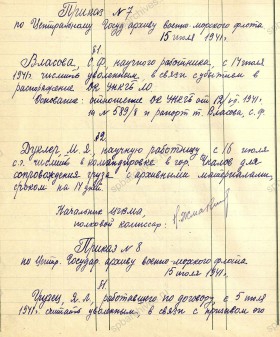 Приказ № 7
по Центральному Госуд. архиву военно-морского флота
15 июля 1941 г.
§1.
Власова, С.Ф., научного работника, с 14 июля
1941 г. числить уволенным, в связи с убытием в
распоряжение ОК УНКГБ ЛО.
Основание: отношение ОК УНКГБ от 12/VII 1941 г.
за № 589/8 и рапорт т. Власова, С.Ф.
§2.
М.Я., научную работницу с 16 июля
с.г. числить в командировке в гор. Чкалов для
сопровождения груза с архивными материалами,
сроком на 14 дней.
Начальник ЦГАВМФ,
полковой комиссар:
Приказ № 8
по Центр. Государ. архиву военно-морского флота
15 июля 1941 г.
§1.
работавшего по договору, с 5 июля
1941 г. считать уволенным, в связи с призывом его